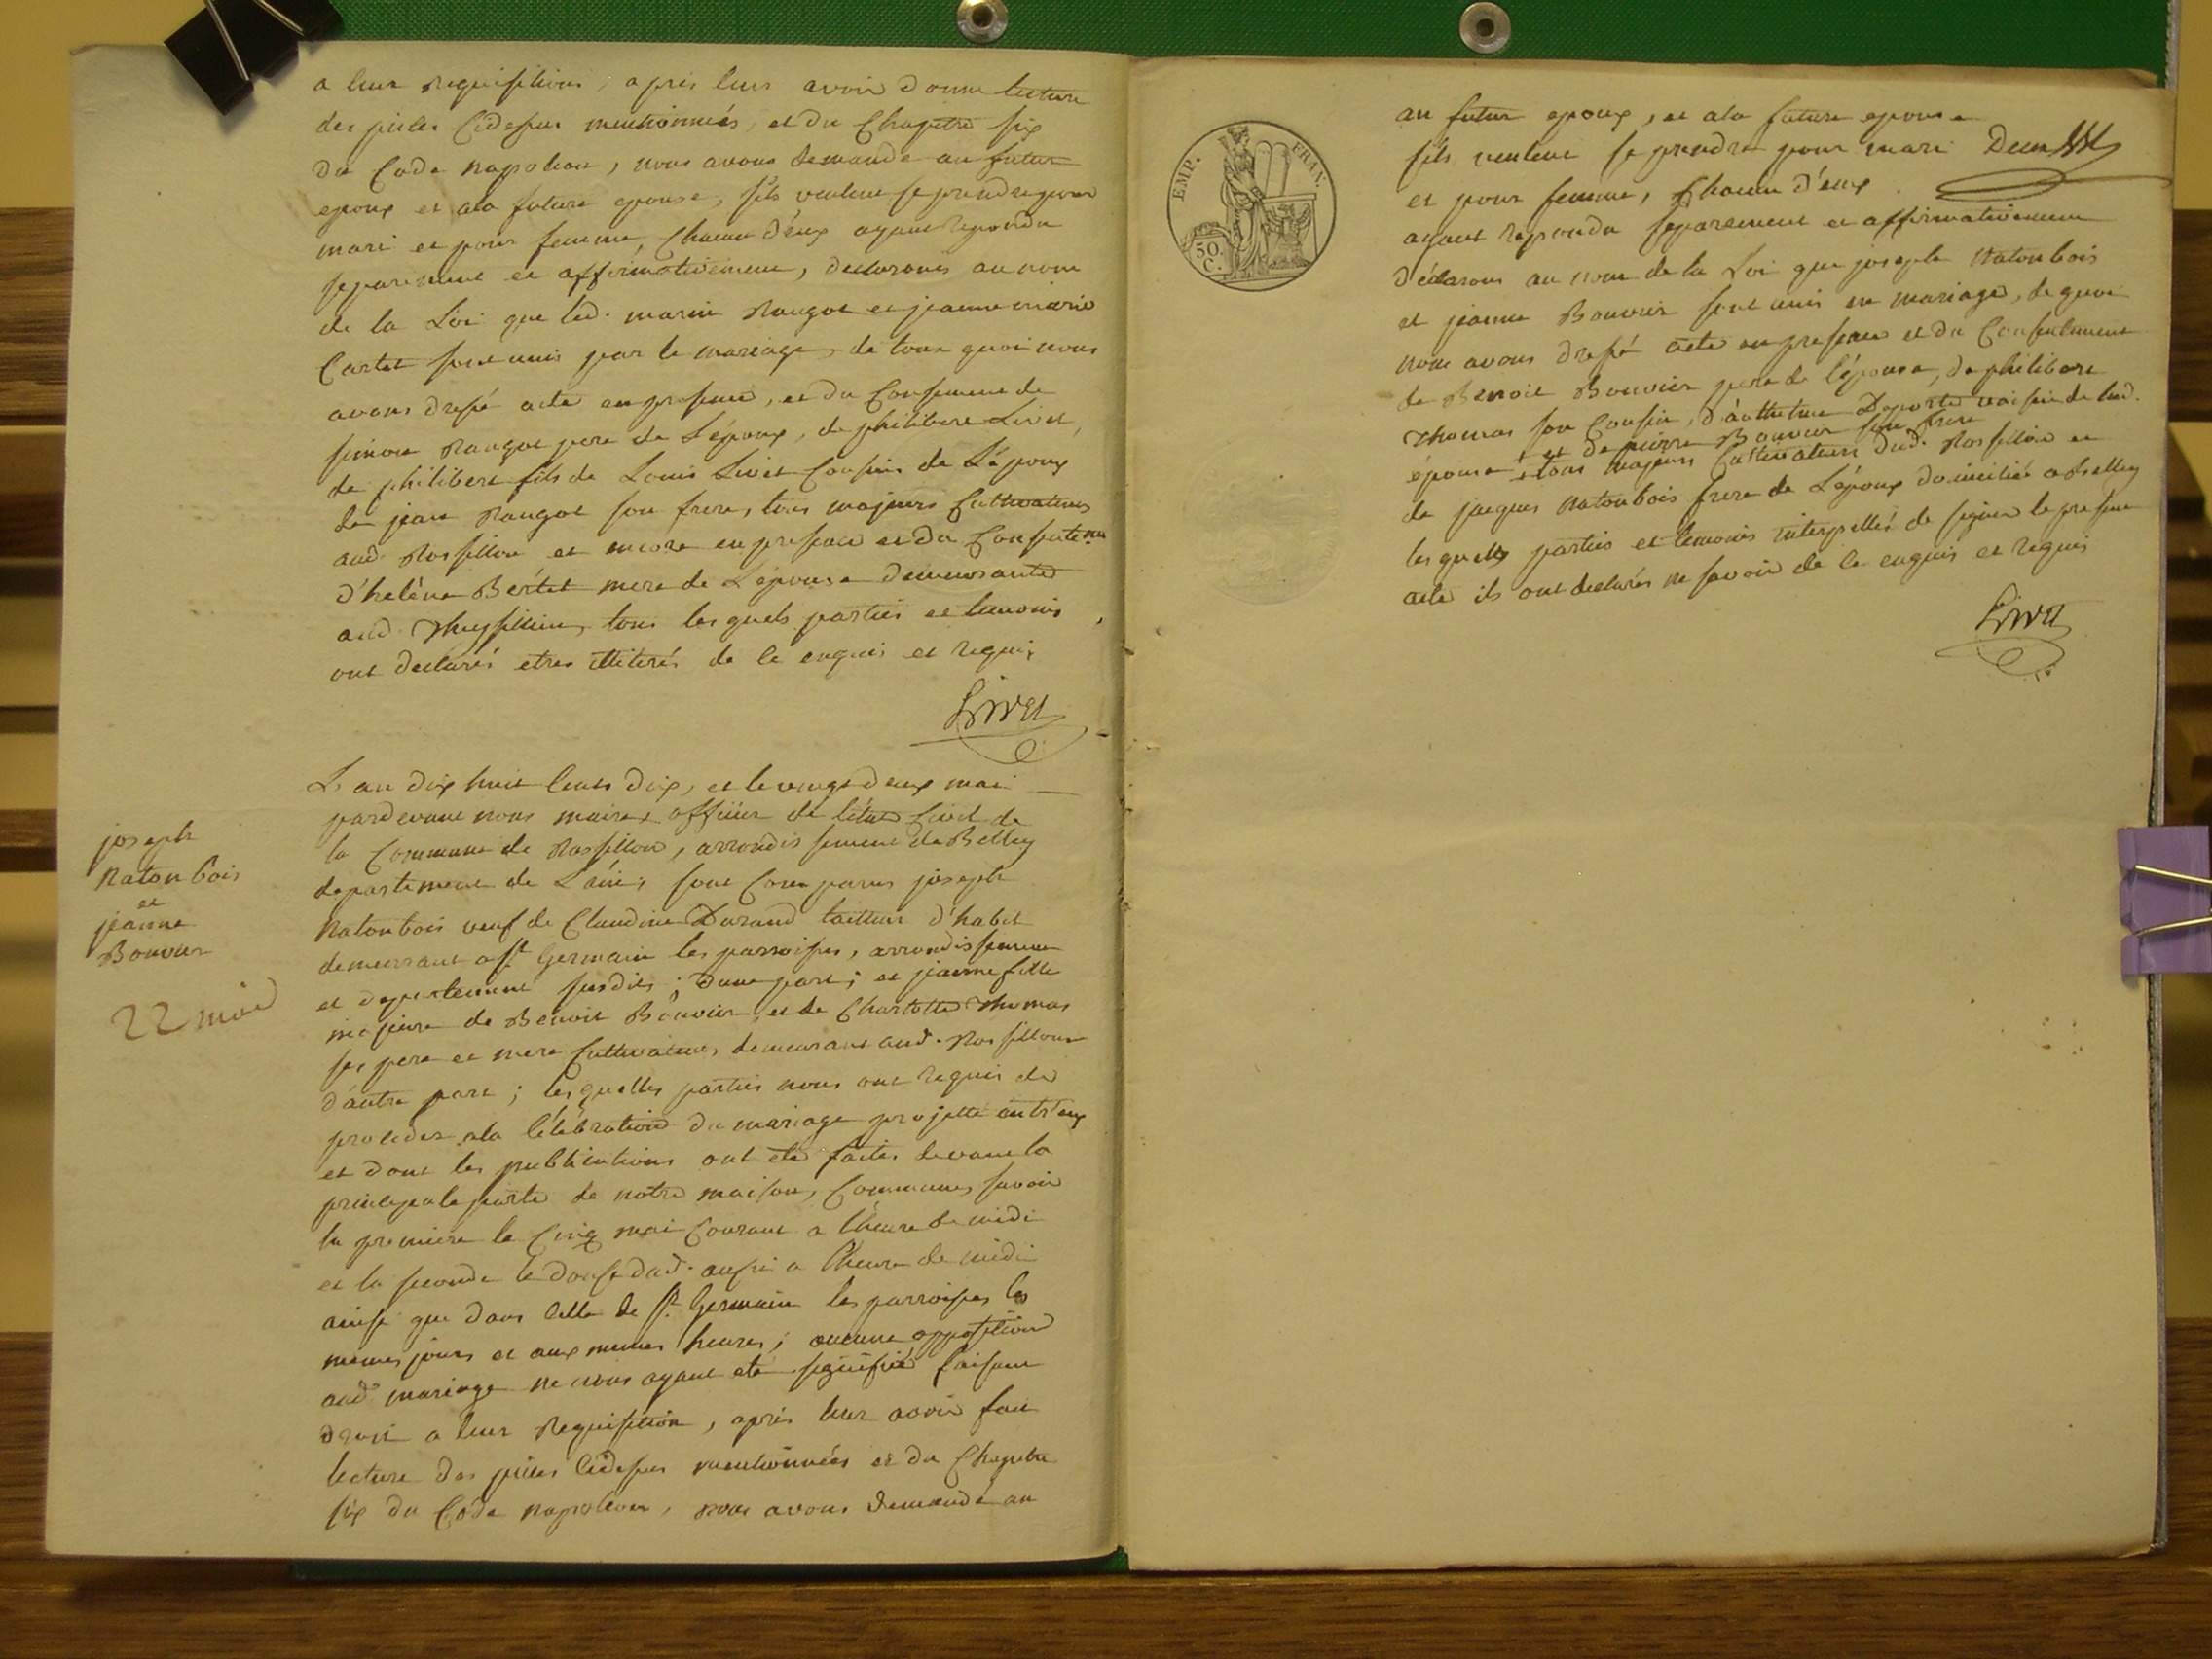 a leur requisitions, apres leurs avoir donné lecture
des pieces cidessus mentionnées, et du chapitre six
du Code napoleon, nous avons demandé au futur
epoux et ala future epouse, s'ils veulent se prendre pour
mari et pour femme, chacun d'eux ayant repondu
separement et affirmativement, declarons au nom
de la Loi que led. marin Raugot et jeanne marie
Cartet sont unis par le mariage, de tout quoi nous
avons dressé acte en presence, et du Consement de
simon Raugot pere de L'époux, de philibert Livet,
de philibert fils de Louis Livet Cousins de L'époux
de jean Raugot son frere, tous majeurs Cultivateurs
aud. Rossillon et encore en presence et du Consente.nt
d'heléne Bertet mere de L'épouse demeurante
aud. tous les quels parties et temoins
ont declarés etres illiterés de ce enquis et requis
Livet
L'an dix huit cents dix, et le vingt deux mai
pardevant nous maire, officier de l'état Civil de
la Commune de Rossillon, arrondissement de Belley
departement de L'ain, sont Comparus joseph
Natonbois veuf de Claudine Durand tailleur d'habit
demeurant a St. Germain les parroisses, arrondissement
et departement susdits; d'une part; et jeanne fille
majeure de Benoit Bouvier, et de Charlotte Thomas
ses pere et mere Cultivateurs, demeurant aud. Rossillon
d'autre part; les quelles parties nous ont requis de
proceder ala célébration du mariage projetté entr'eux
et dont les publications ont été faites devant la
principale porte de notre maison, Commune, savoir
la premiere le Cinq mai Courant a l'heure de midi
et la seconde le douse dud. aussi a l'heure de midi
ainsi que dans celle de St. Germain les parroisses les
memes jours et aux memes heures; aucune opposition
aud. mariage ne nous ayant eté signifié faisant
droit a leur Requisition, aprés leur avoir fait
lecture des pieces cidessus mentionnées et du Chapitre
six du Code napoleon, nous avons demandé au
joseph
Natonbois
et
jeanne
Bouvier
22 mai
EMP. FRAN.
50.
C.
au futur epoux, et ala future epouse
s'ils veulent se prendre pour mari
et pour femme, Chacun d'eux
ayant repondu separement et affirmativement
déclarons au nom de la Loi que joseph Natonbois
et jeanne Bouvier sont unis en mariage, de quoi
nous avons dressé acte en presence et du Consentement
de Benoit Bouvier pere de l'épouse, de philibert
Thomas son Cousin, d'anthelme Deporte voisin de lad.
et de pierre Bouvier son frere
épouse tous majeurs Cultivateurs dud. Rossillon et
de jacques Natonbois frere de L'époux domicilié a Belley
les quells parties et temoins interpellés de signer le present
acte ils ont declarés ne savoir de ce enquis et requis
Livet